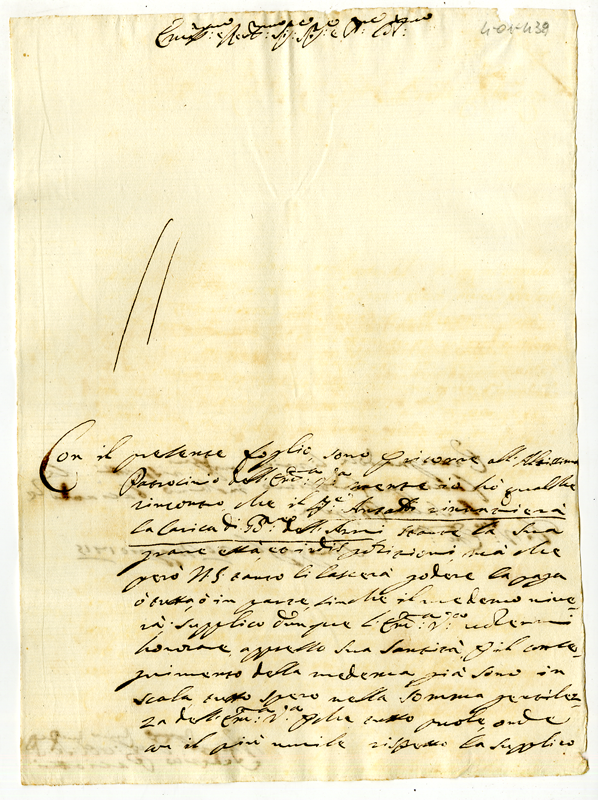 Em.mo e Rev.mo Sig.r Sig.r e P.ne Col.mo
4-01-439
Con il presente foglio sono a ricorrere all'Altissimo
Patrocinio dell'Em.za V.a mentre io hò qualche
rincontro che il S.r rinuncierà
la Carica di G.re dell'Armi stante la sua
grave età, et indisposizioni, mà che
però N.S. tanto li lascerà godere la paga
ò tutta, ò in parte, finche il medemo vive-
rà: supplico dunque l'Em.za V.a
honorare, appresso Sua Santità, p il conse-
guimento della medema, già sono in
scala tutto spero nella somma gentilez-
za dell'Em.za V.a che tutto puole, onde
con il più umile rispetto la supplico